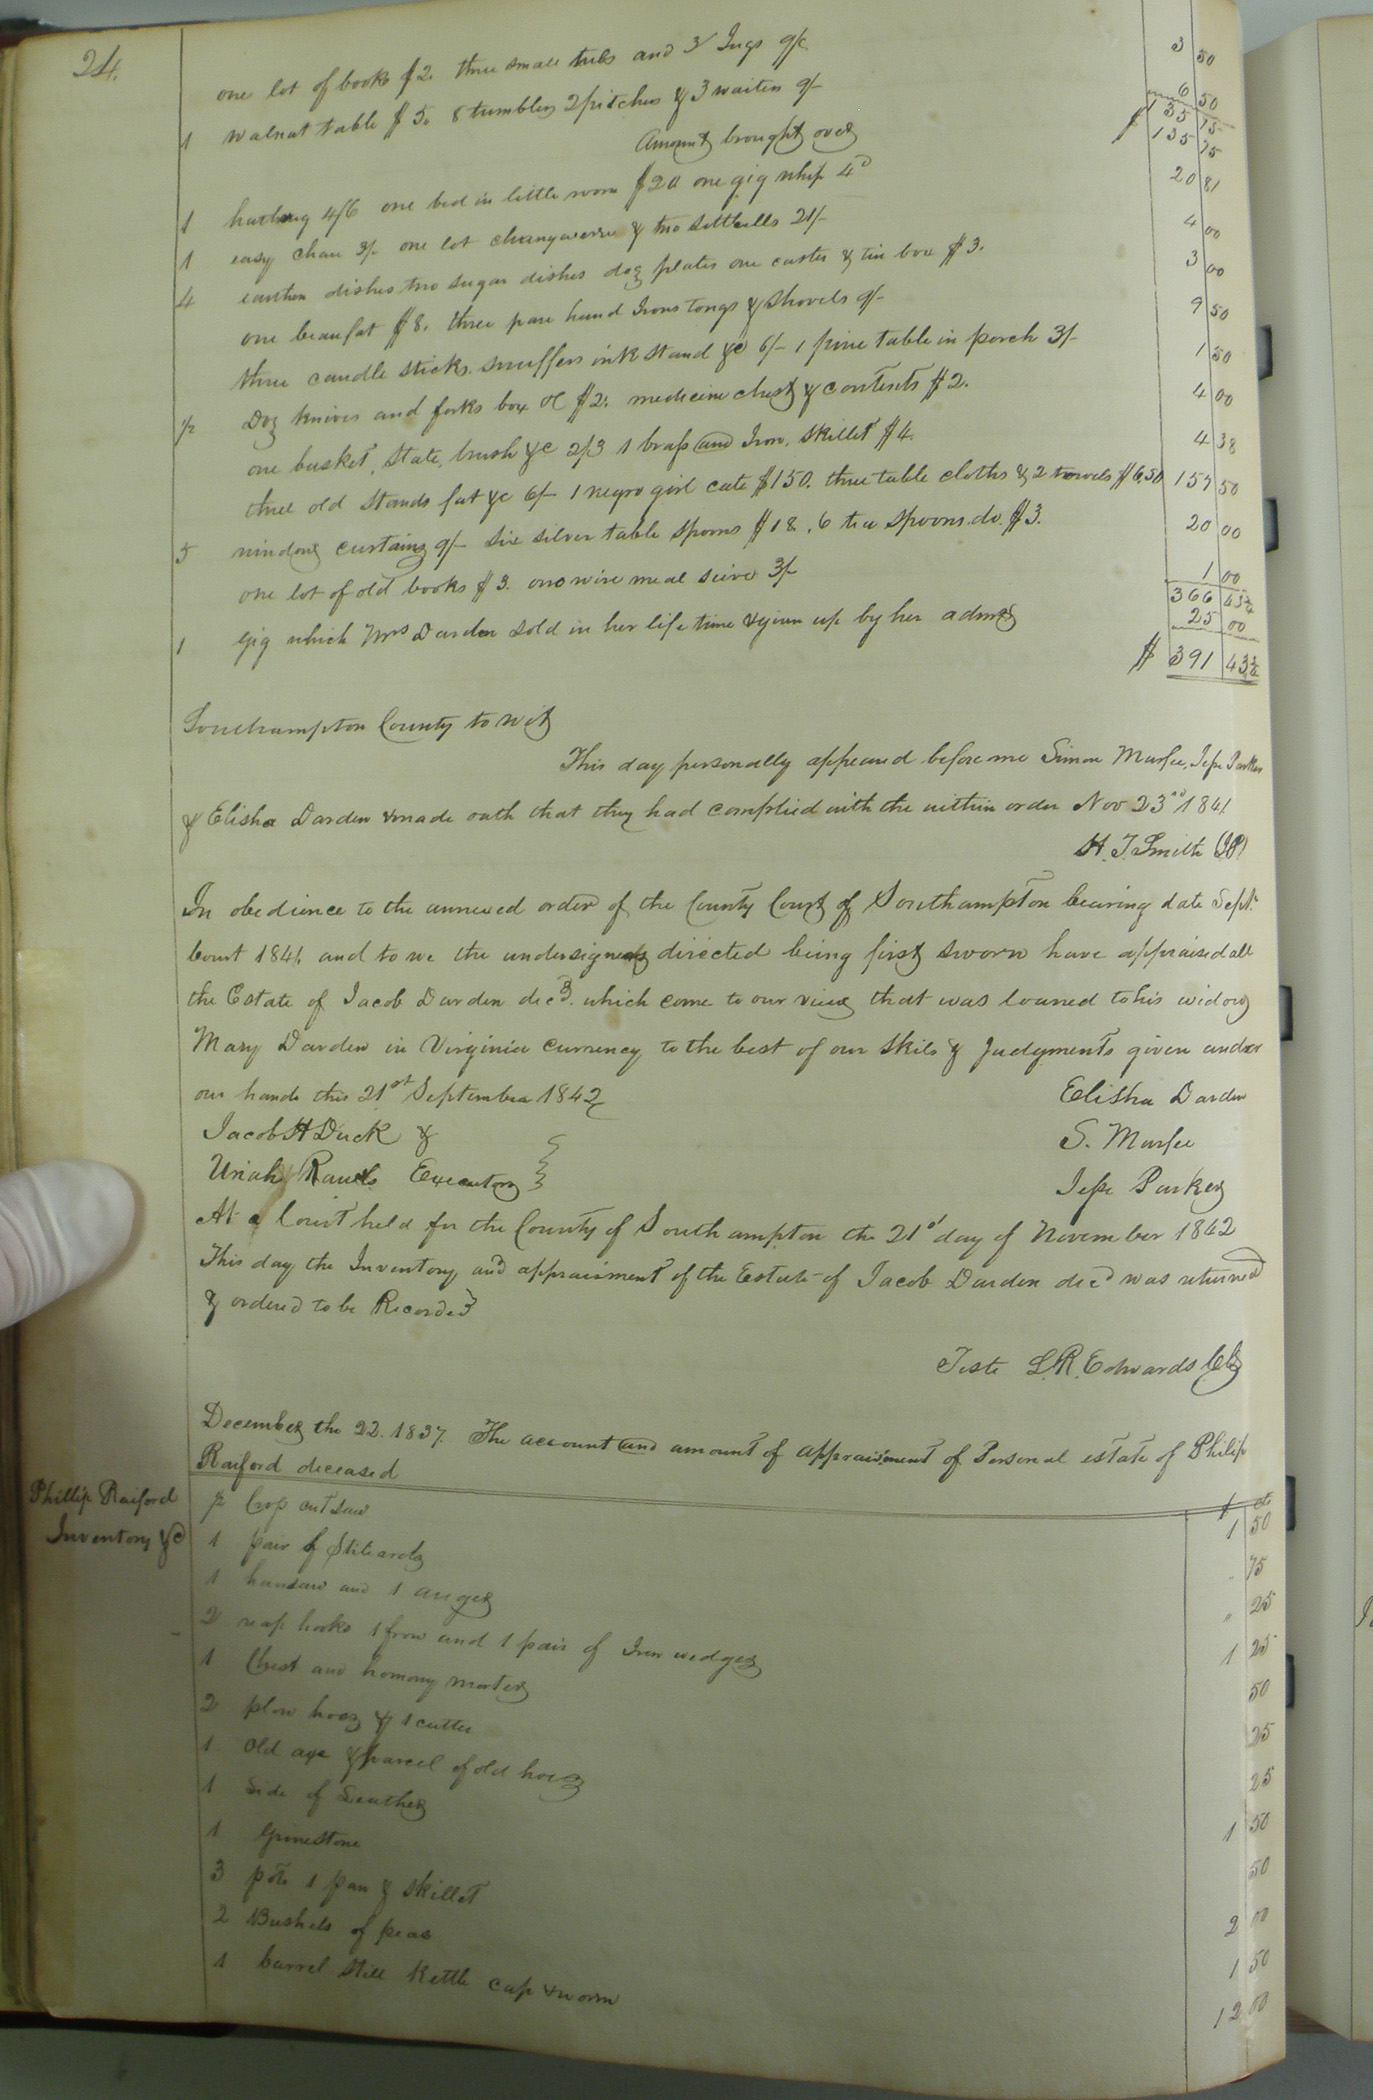 24.
one lot of books $2. three small tubs and 3 Jugs 9/c. 3 50
1 walnut table $5. 8 tumblers 2 pitchers & 3 waiters 9/- 6 50
$ 135 15
Amount brought over 135 15
1 4/6 one bed in little room $20 one gig whip 4d 20 81
1 easy chair 3/- one lot & two 21/- 4 00
4 earthen dishes two sugar dishes doz plates one caster & tin box $3. 3 00
one beaufat $8. three pare hand Irons tongs & shovels 9/- 9 50
three candle sticks, snuffers ink stand &c 6/- 1 pine table in porch 3/- 1 50
½ Doz knives and forks box &c $2. medicine chest & contents $2. 4 00
one basket, slate, brush &c 2/3 1 brass and Iron, skillet $4. 4 38
three old stands fat &c 6/- 1 negro girl cate $150. three table cloths & 2 towels $6,50 157 50
5 window curtains 9/- six silver table spoons $18. 6 tea spoons. do. $3. 20 00
one lot of old books $3. one wire meal seive 3/- 1 00
366 43¾
1 Gig which Mrs Darden sold in her life time & given up by her admr 25 00
$ 391 43¾
Southampton County to wit
This day personally appeared before me Simon Murfee, Jesse Parker
& Elisha Darden & made oath that they had complied with the within order Nov 23rd 1841
H. T. Smith (JP)
In obedience to the annexed order of the County Court of Southampton bearing date Sept.
Court 1841, and to we the undersigned directed being first sworn have appraised all
the Estate of Jacob Darden decd. which come to our view that was loaned to his widow
Mary Darden in Virginia Currency to the best of our skils & Judgments given under
our hands this 21st September 1842
Elisha Darden
Jacob H Duck &
S. Murfee
Uriah Rawls Executors
Jesse Parker
At a Court held for the County of Southampton the 21st day of November 1842
This day the Inventory and appraisment of the Estate of Jacob Darden decd was returned
& ordered to be Recorded
Teste L. R. Edwards Clk
December the 22. 1837. The account and amount of appraisment of Personal estate of Philip
Raiford deceased
Phillip Raiford
Inventory &c
$ cts
½ Crop cut saw 1 50
1 pair of Stileards " 75
1 hansaw and 1 auger " 25
2 reap hooks 1 frow and 1 pair of Iron wedges 1 25
1 Chest and homony morter 50
2 plow hoes & 1 cutter 25
1 Old axe & parcel of old hoes 25
1 Side of Leather 1 50
1 Grinestone 50
3 pots 1 pan & skillet 2 00
2 Bushels of peas 1 50
1 barrel Still Kettle cap & worm 12 00